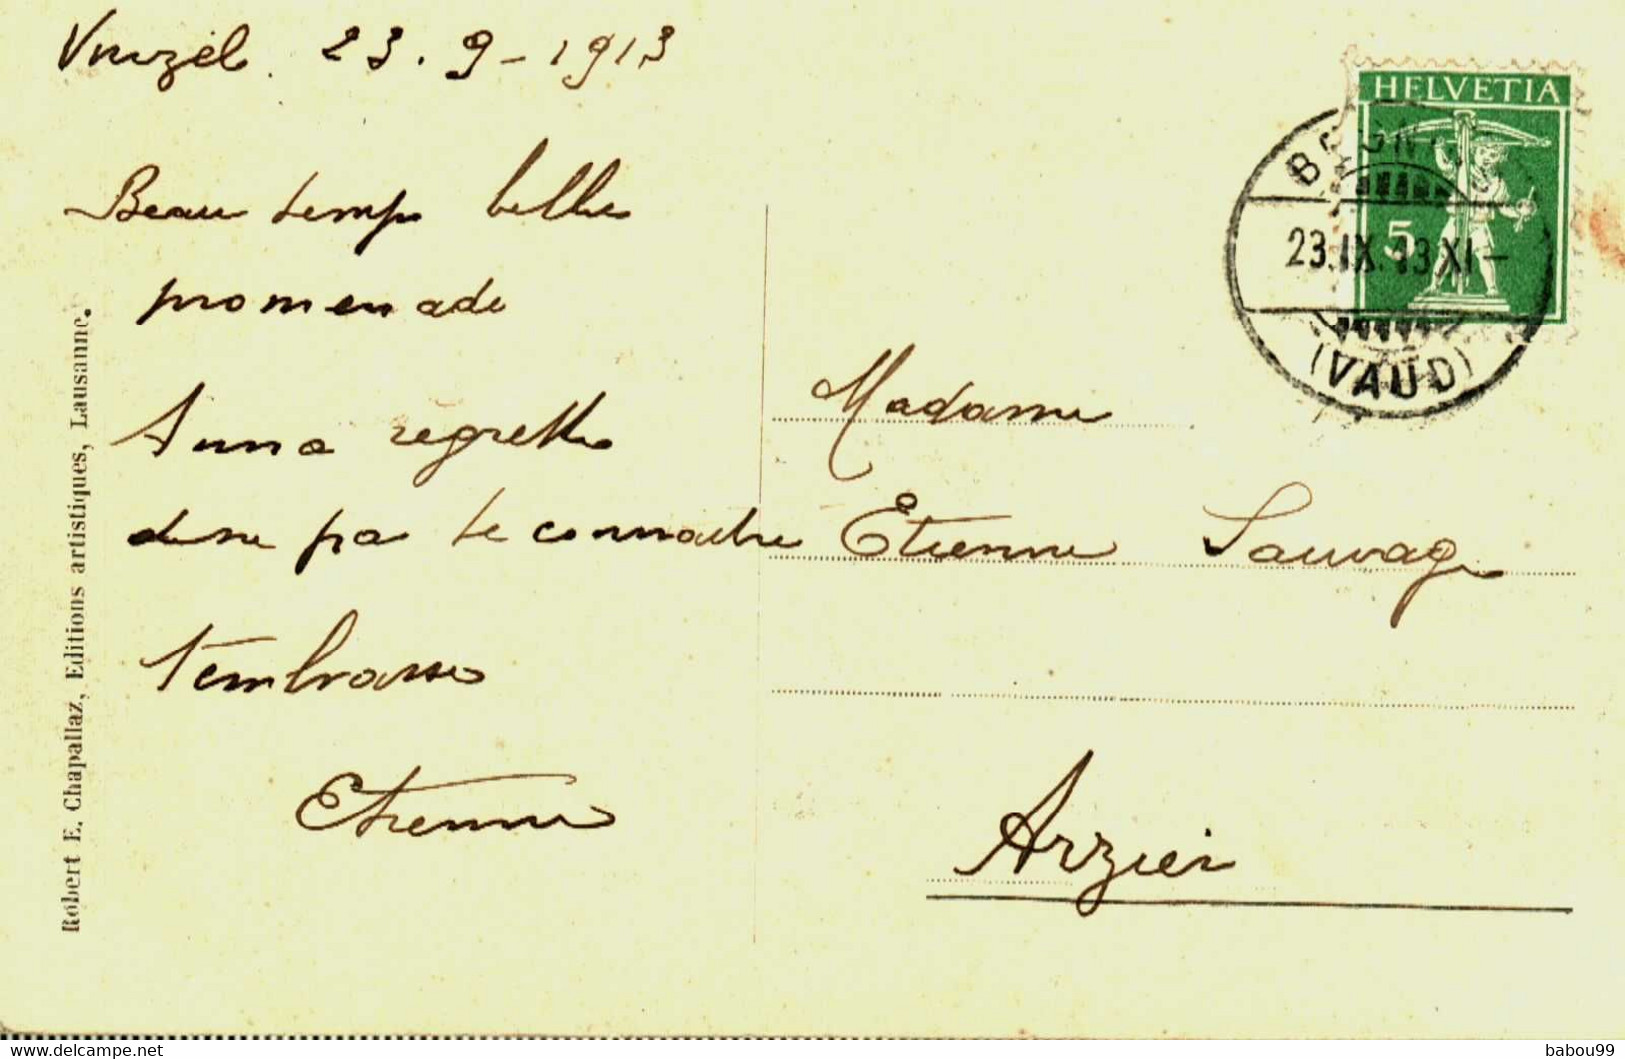 Vinzel. 23.9-1913
Beau temps belle
promenade
Anna regrette
de ne pas te connaitre
t'embrasse
Etienne
Robert E. Chapallaz, Editions artistiques, Lausanne.
HELVETIA
5
23.IX.13.XI-
(VAUD)
Madame
Etienne Sauvage
Arzier
babou99
www.delcampe.net